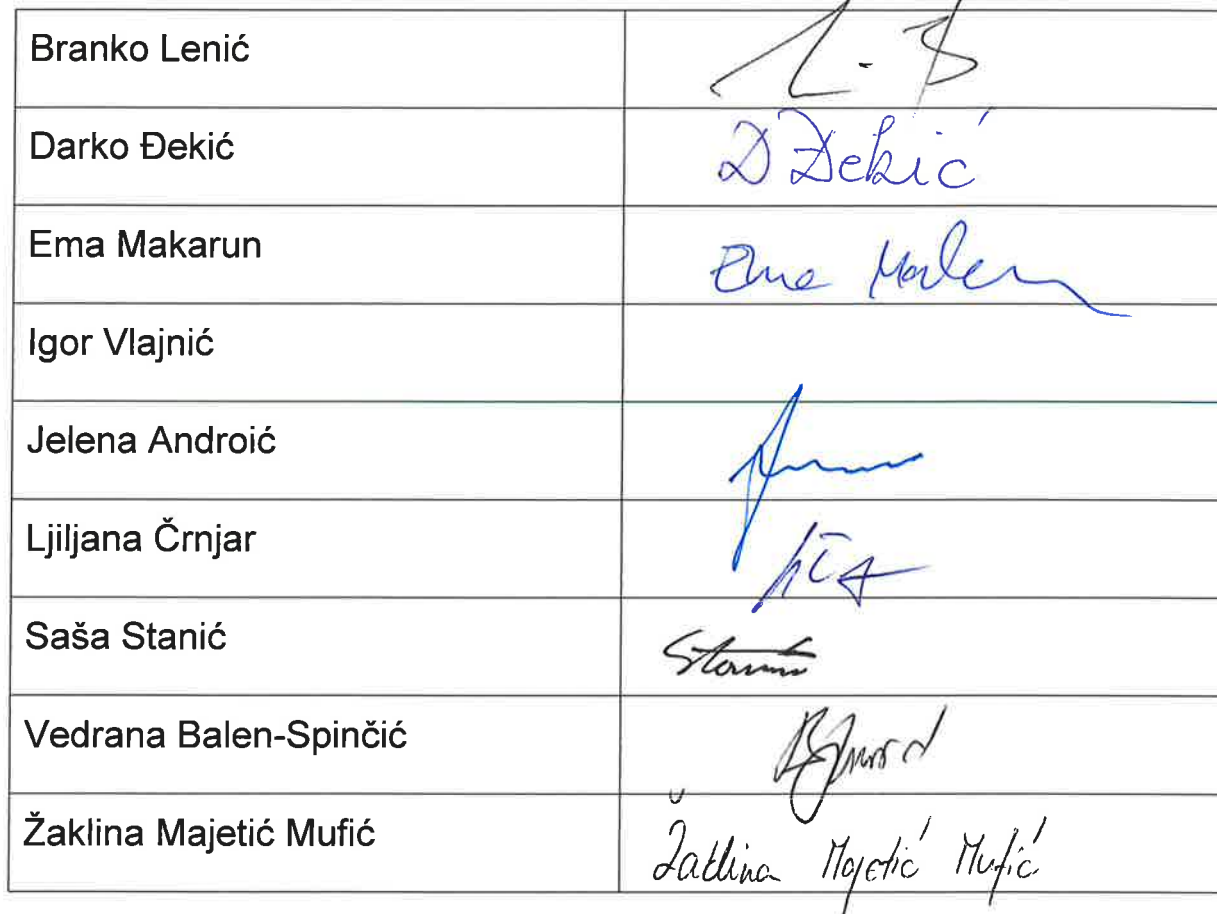 Branko Lenić
Darko Đekić D Đekić
Ema Makarun Ema
Igor Vlajnić
Jelena Androić
Ljiljana Črnjar
Saša Stanić
Vedrana Balen-Spinčić
Žaklina Majetić Mufić Žaklina Majetić Mufić